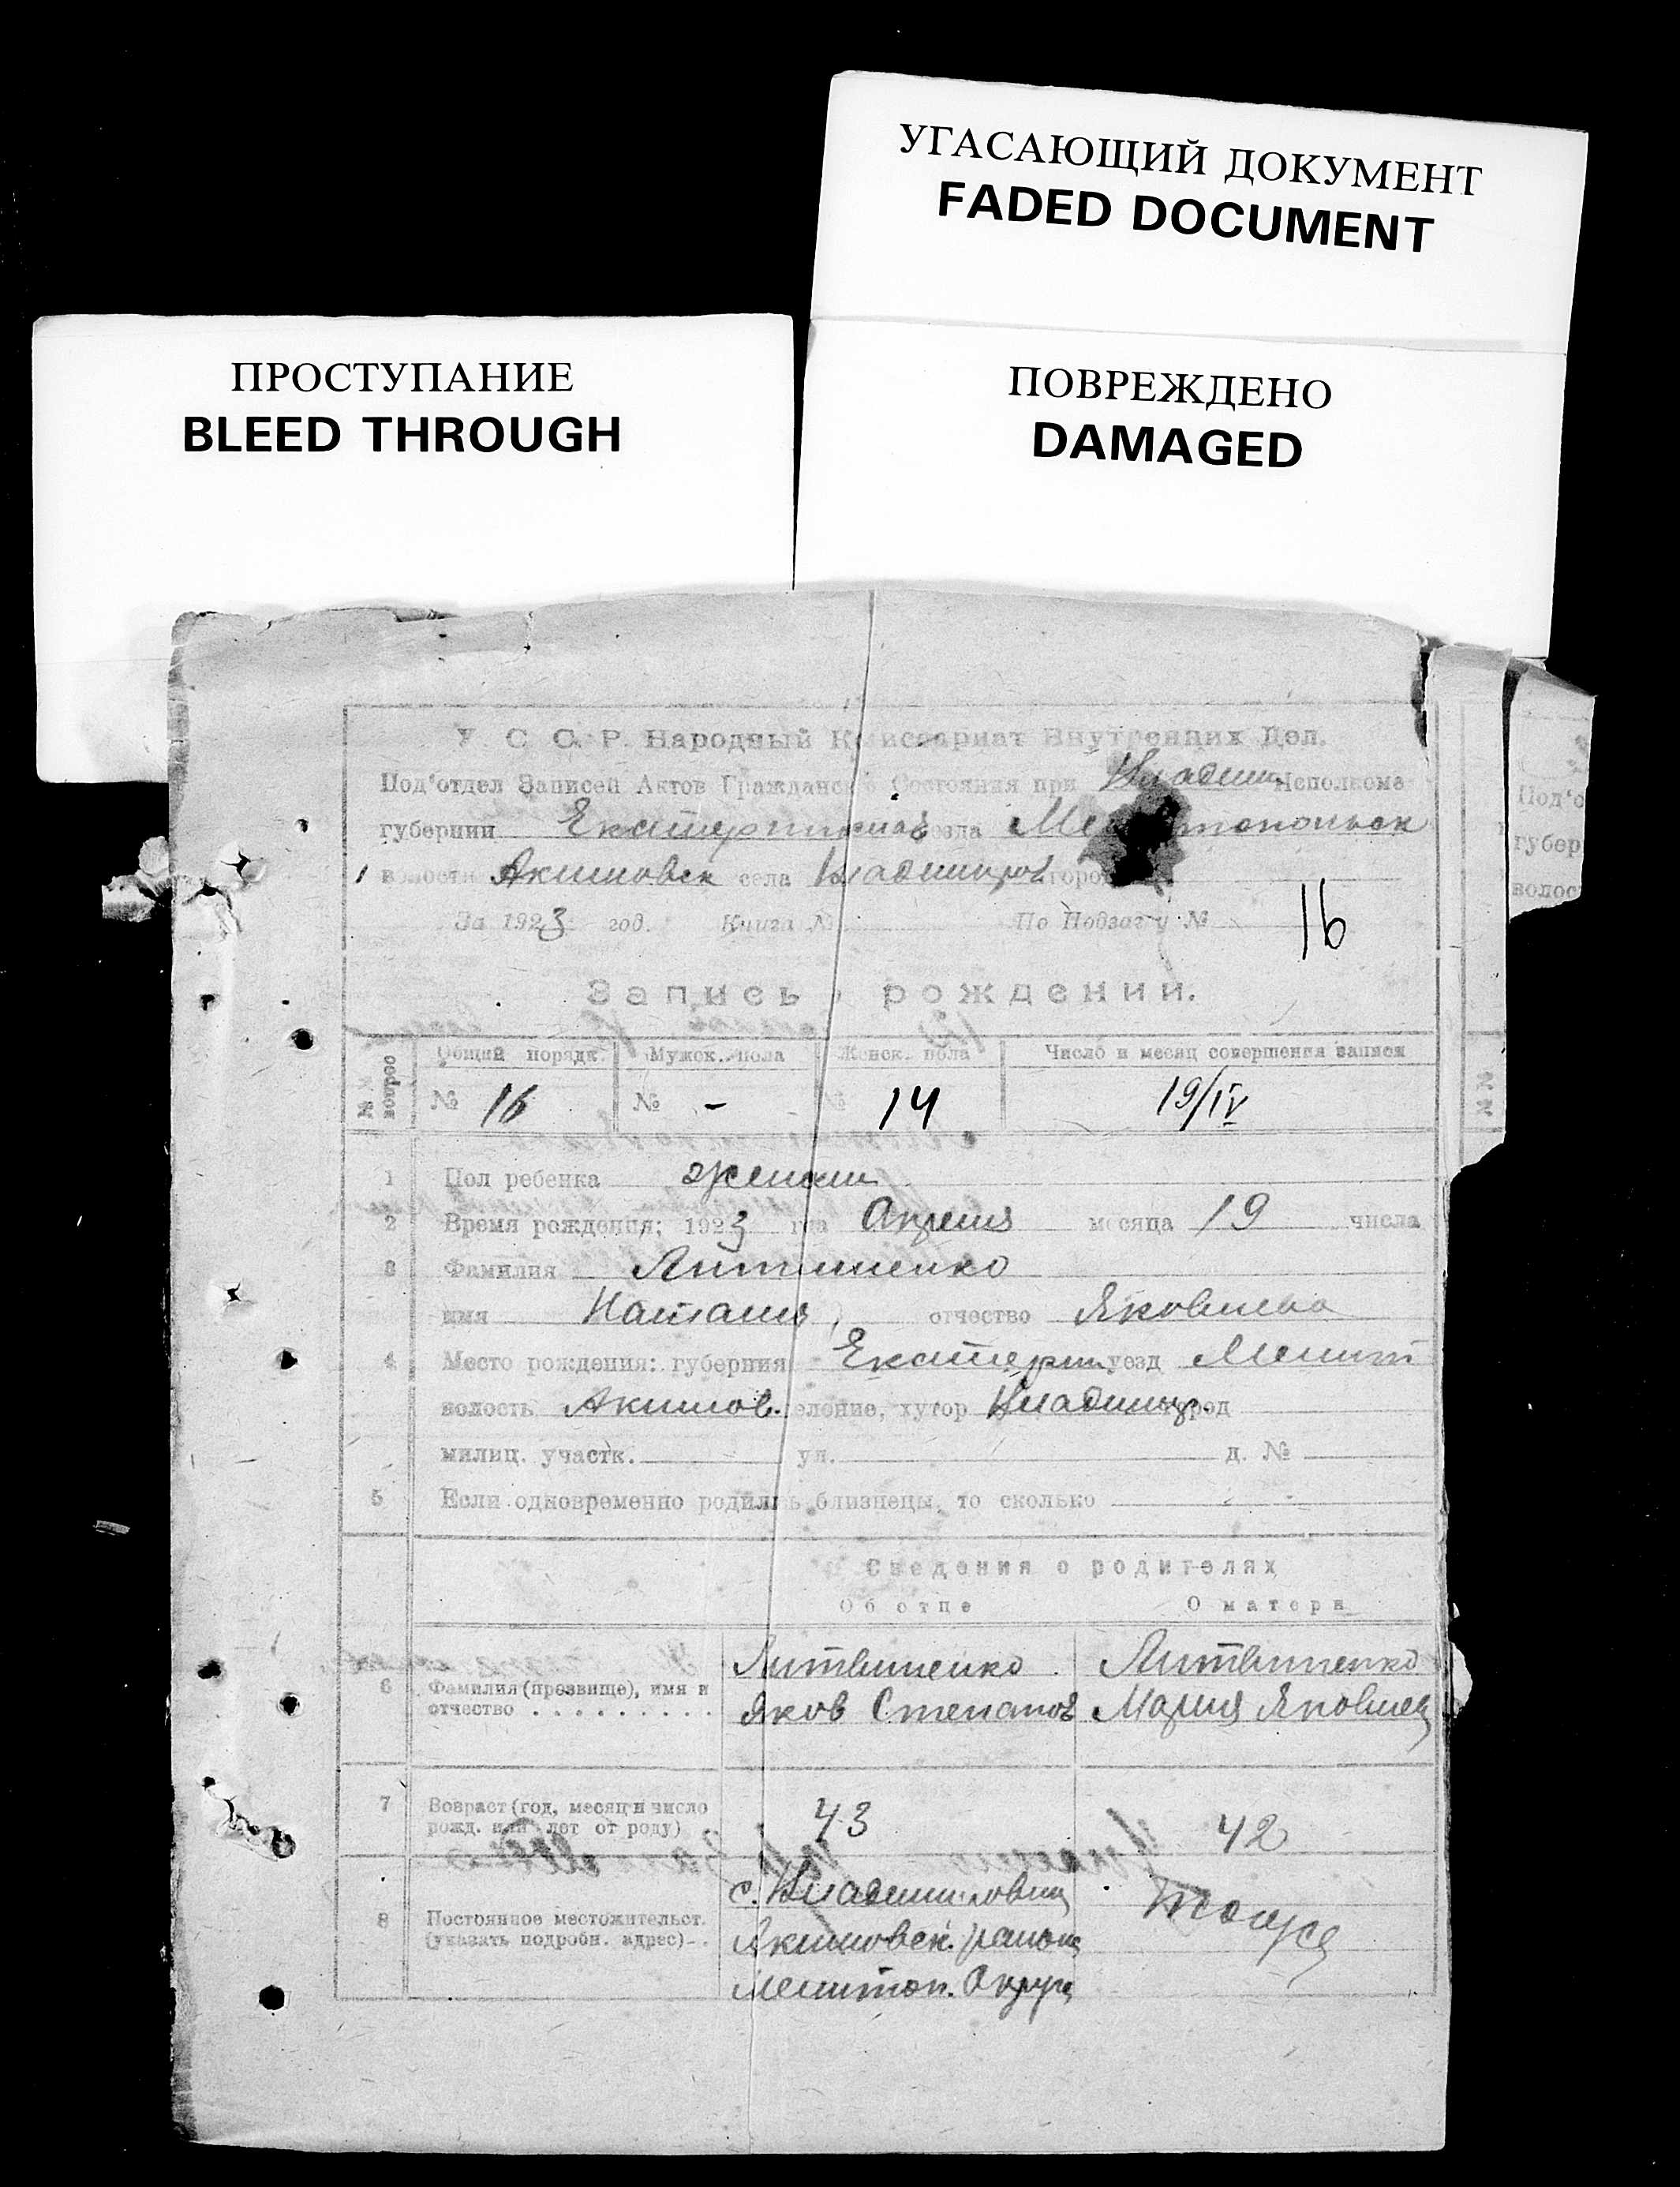 УГАСАЮЩИЙ ДОКУМЕНТ
FADED DOCUMENT
ПРОСТУПАНИЕ
BLEED THROUGH
ПОВРЕЖДЕНО
DAMAGED
У. С. С. Р. Народный Комиссариат Внутренних Дел.
Под'отдел Записей Актов Гражданск Состояния при Владим. Исполкоме
губернии Екатеринослав езда Ме топольск
волости Акимовск села Владимиров горо
За 1923 год. Книга № По Подзагу № 16
Запись рождении.
№ № вопросо
Общий порядк. Мужск. пола Женск. пола Число и месяц совершения записи
№ 16 № - № 14 19/IV
1 Пол ребенка женск
2 Время рождения: 1923 г а Апреля месяца 19 числа
3 Фамилия Литвиненко
имя Наталия отчество Яковлева
4 Место рождения: губерния Екатерин уезд Мелит
волость Акимов. еление, хутор Владимир. род
милиц. участк. ул. д. №
5 Если одновременно родились близнецы, то сколько -
Сведения о родителях
Об отце О матери
6 Фамилия (прозвище), имя и отчество Литвиненко Яков Степанов Литвиненко Мария Яковлев
7 Возраст (год, месяц и число рожд. или лет от роду) 43 42
8 Постоянное местожительст. (указать подробн. адрес) с. Владимировка Акимовск. района Мелитоп. Округа тоже
Под'о
губер
волос
№ №